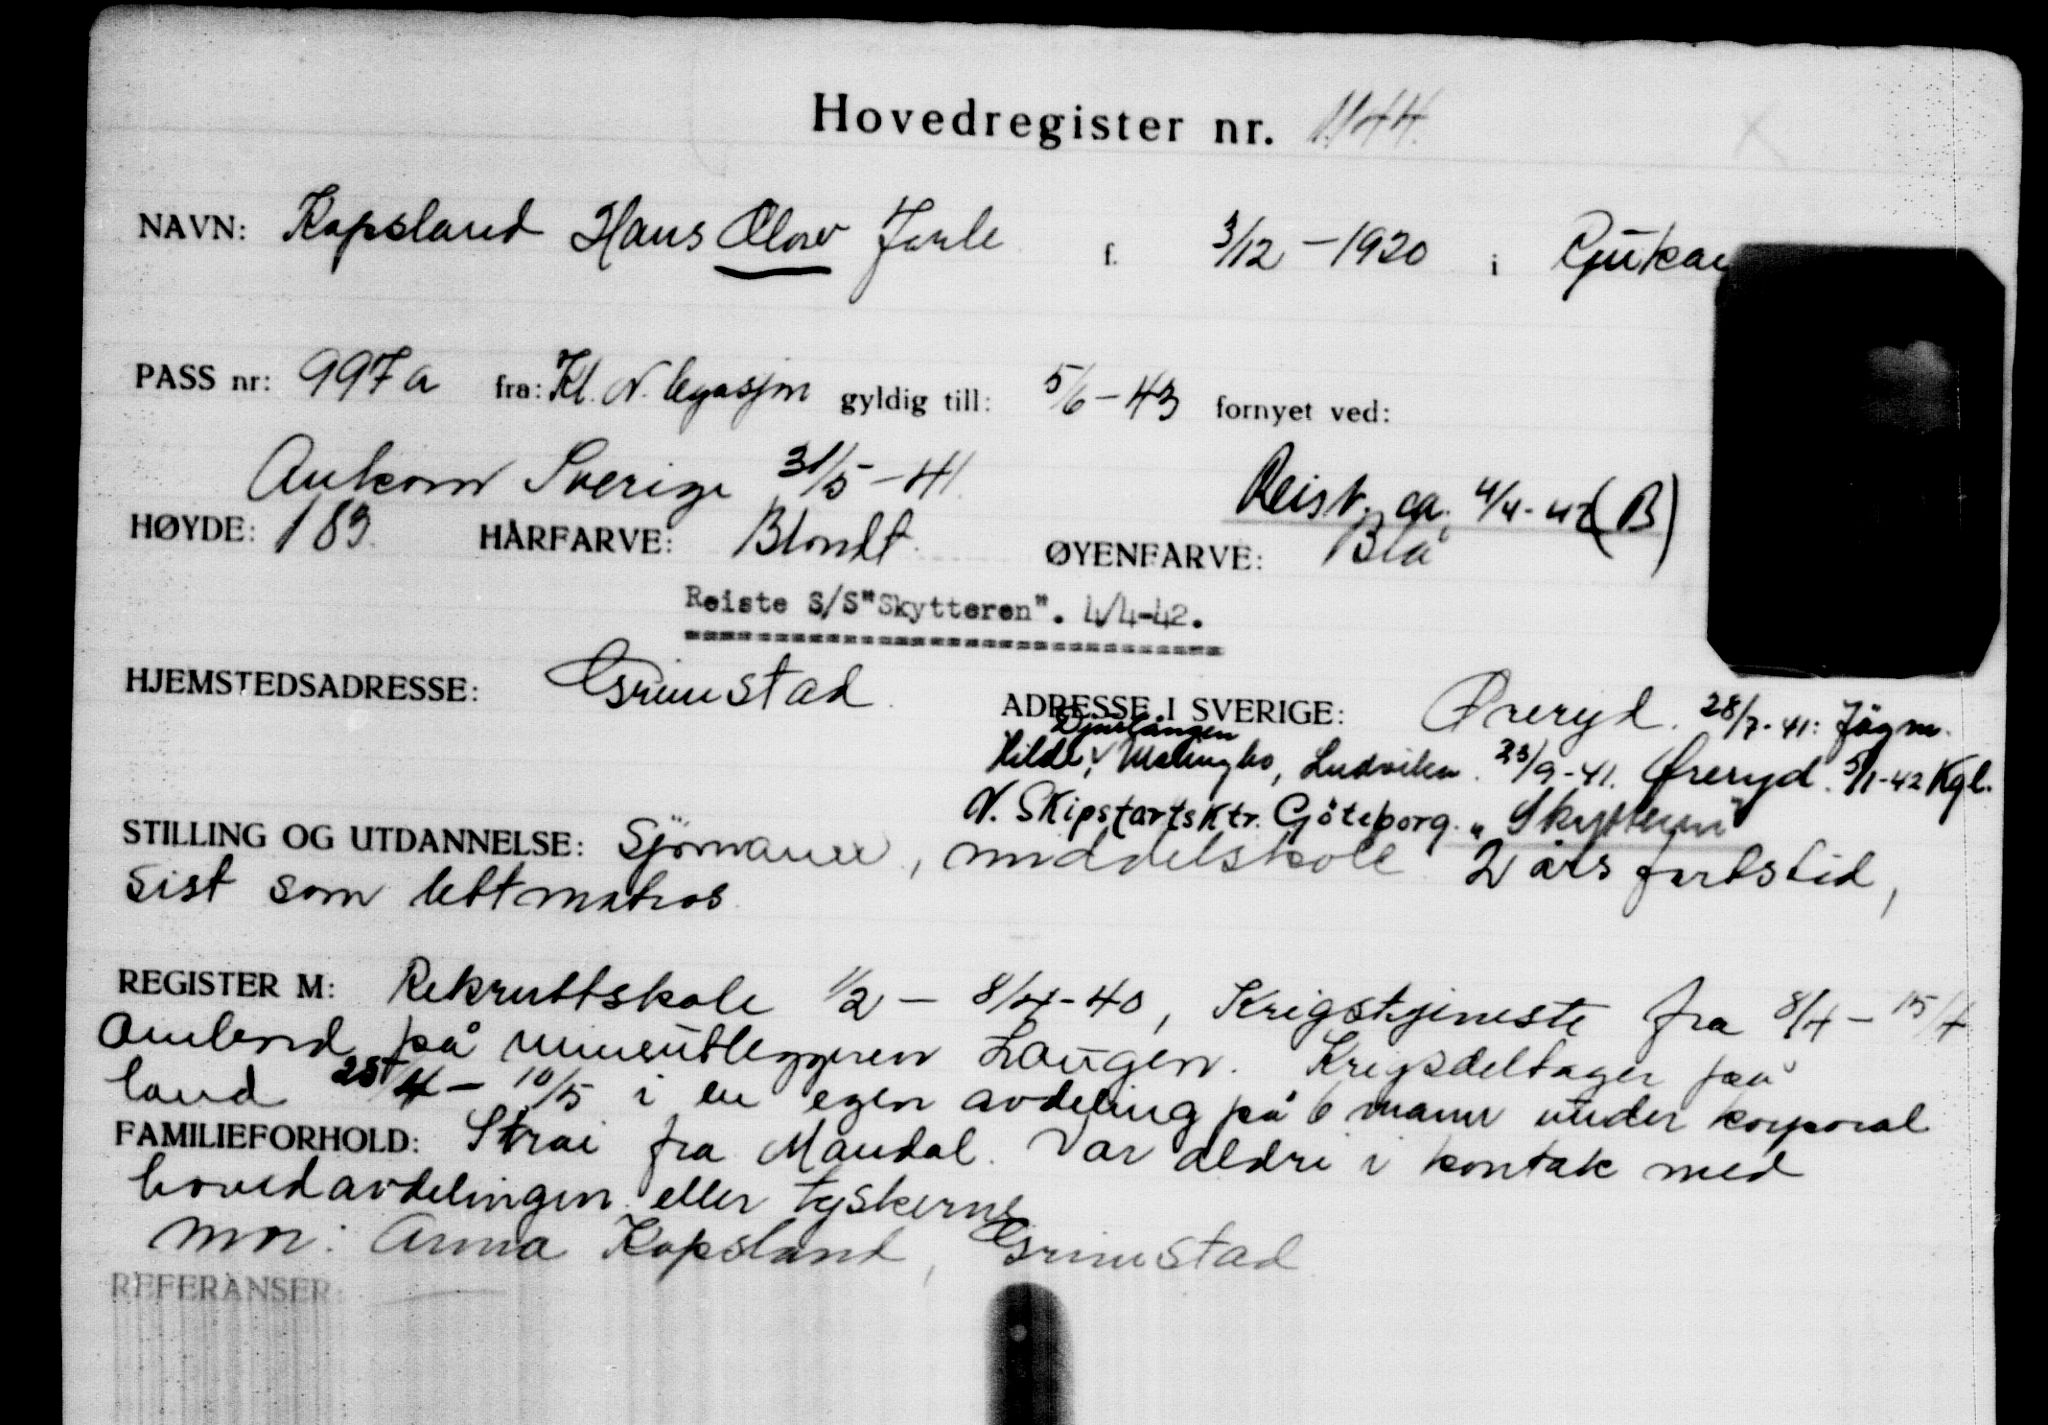 Hovedregister nr. 1144.
NAVN: Kapsland Hans Olav Jarle f. 3/12 - 1920 i Rjukan
PASS nr: 997a fra: Kl. N. legasjon gyldig till: 5/6 - 43 fornyet ved:
Ankom Sverige 31/5 - 41.
Reist ca. 4/4-42 (B)
HØYDE: 183. HÅRFARVE: Blondt. ØYENFARVE: Blå
Reiste S/S"Skytteren". 4/4-42.
HJEMSTEDSADRESSE: Grimstad.
ADRESSE I SVERIGE: Øreryd. 28/7-41: Jägm.
Djurlången
Hilde, Malingbo, Ludvika. 23/9-41. Øreryd. 5/1-42 Kgl.
N. Skipsfartsktr. Göteborg. "Skytteren"
STILLING OG UTDANNELSE: Sjömann, middelskole 2 års fartstid,
sist som lettmatros.
REGISTER M: Rekruttskole 1/2 - 8/4-40, Krigstjeneste fra 8/4 - 15/4
ombord på mineutleggeren Laugen. Krigsdeltager på
land 25/4 - 10/5 i en egen avdeling på 6 mann under korporal
FAMILIEFORHOLD: Strai fra Mandal. Var aldri i kontak med
hovedavdelingen eller tyskerne
Mor: Anna Kapsland, Grimstad
REFERANSER: